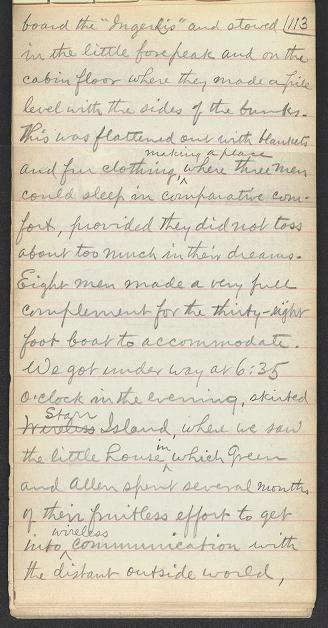 113
board the "Ingerkis" and stowed
in the little forepeak and on the
cabin floor where they made a pile
level with the sides of the bunks.
This was flattened out with blankets
making a place
and fur clothing, ^ where three men
could sleep in comparative com-
fort, provided they did not toss
about too much in their dreams.
Eight men made a very full
complement for the thirty-eight
foot boat to accommodate.
We got under way at 6:35
o'clock in the evening, skirted
Starr
Wireless Island, where we saw
in
the little house ^ which Green
and Allen spent several months
of their fruitless effort to get
wireless
into ^ communication with
the distant outside world,